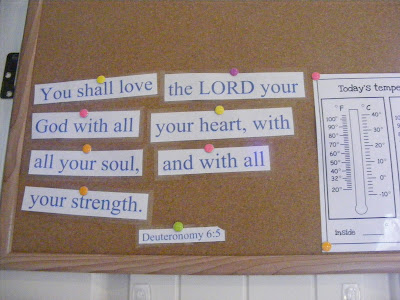 You shall love the LORD your
God with all your heart, with
all your soul, and with all
your strength.
Deuteronomy 6:5
Today's tempe
°F °C
100° 40°
90° 30°
80° 20°
70° 10°
60° 0°
50° -10°
40°
32°
20°
Inside